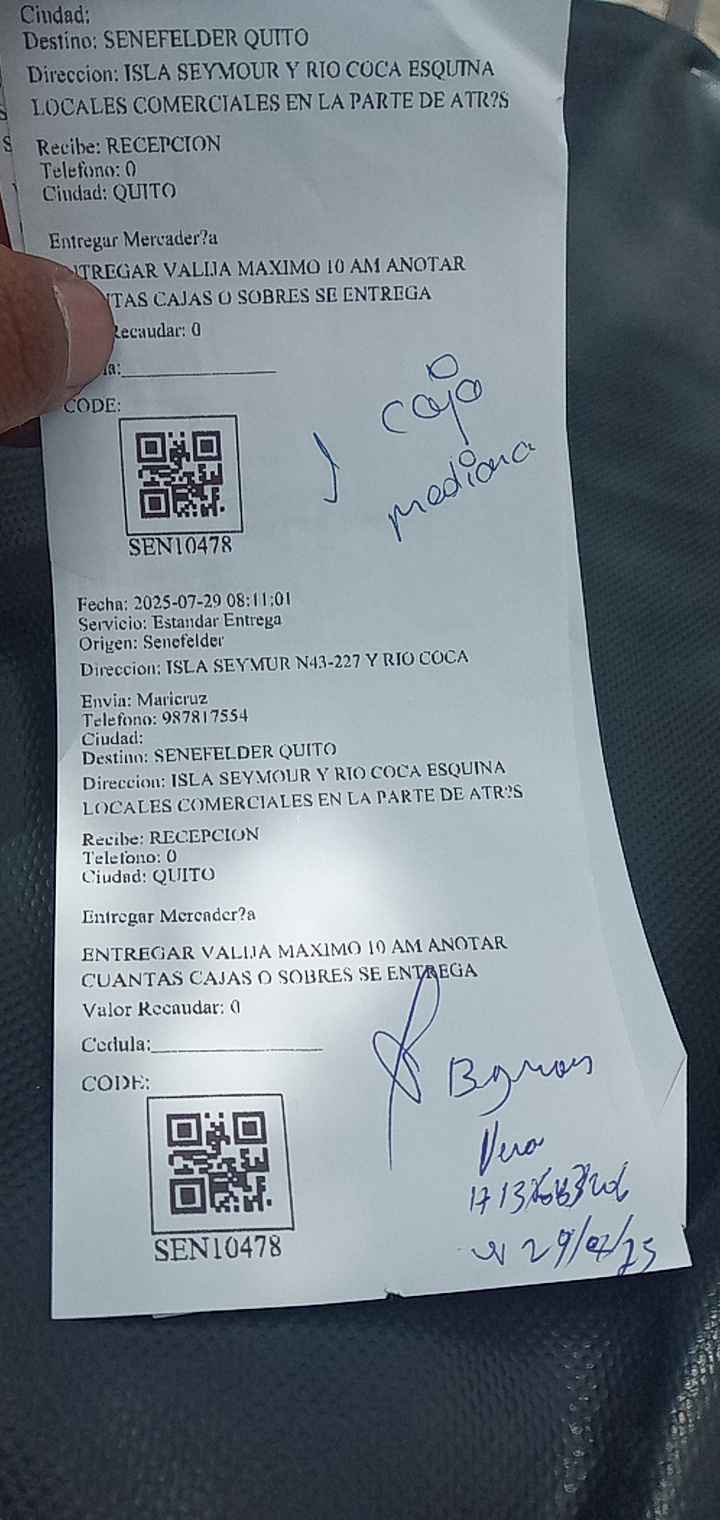 Ciudad:
Destino: SENEFELDER QUITO
Direccion: ISLA SEYMOUR Y RIO COCA ESQUINA
LOCALES COMERCIALES EN LA PARTE DE ATR?S
Recibe: RECEPCION
Telefono: 0
Ciudad: QUITO
Entregar Mercader?a
TREGAR VALIJA MAXIMO 10 AM ANOTAR
TAS CAJAS O SOBRES SE ENTREGA
Recaudar: 0
la:
CODE:
1 caja
mediana
SEN10478
Fecha: 2025-07-29 08:11:01
Servicio: Estandar Entrega
Origen: Senefelder
Direccion: ISLA SEYMUR N43-227 Y RIO COCA
Envia: Maricruz
Telefono: 987817554
Ciudad:
Destino: SENEFELDER QUITO
Direccion: ISLA SEYMOUR Y RIO COCA ESQUINA
LOCALES COMERCIALES EN LA PARTE DE ATR?S
Recibe: RECEPCION
Telefono: 0
Ciudad: QUITO
Entregar Mercader?a
ENTREGAR VALIJA MAXIMO 10 AM ANOTAR
CUANTAS CAJAS O SOBRES SE ENTREGA
Valor Recaudar: 0
Cedula:
CODE:
Byron
Vera
SEN10478